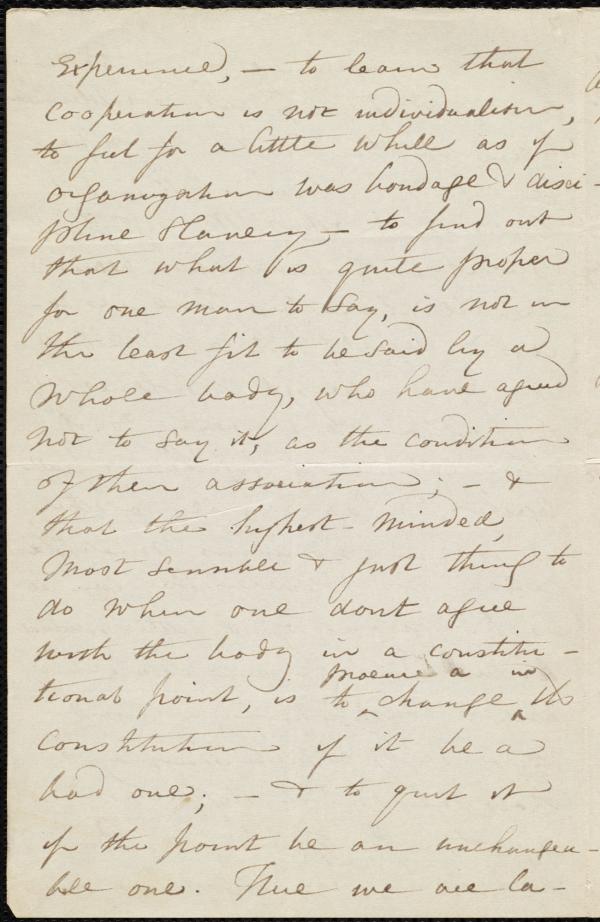 Experience, — to learn that
cooperation is not individualism,
to feel for a little while as if
organization was bondage & disci-
pline slavery, — to find out
that what is quite proper
for one man to say, is not in
the least fit to be said by a
whole body, who have agreed
not to say it, as the condition
of their association; — &
that the highest-minded,
most sensible & just thing to
do when one dont agree
with the body in a constitu-
tional point, is to ^procure a^ change ^in^ the
constitution if it be a
bad one; — & to quit it
if the point be an unchangea-
ble one. Here we are la-